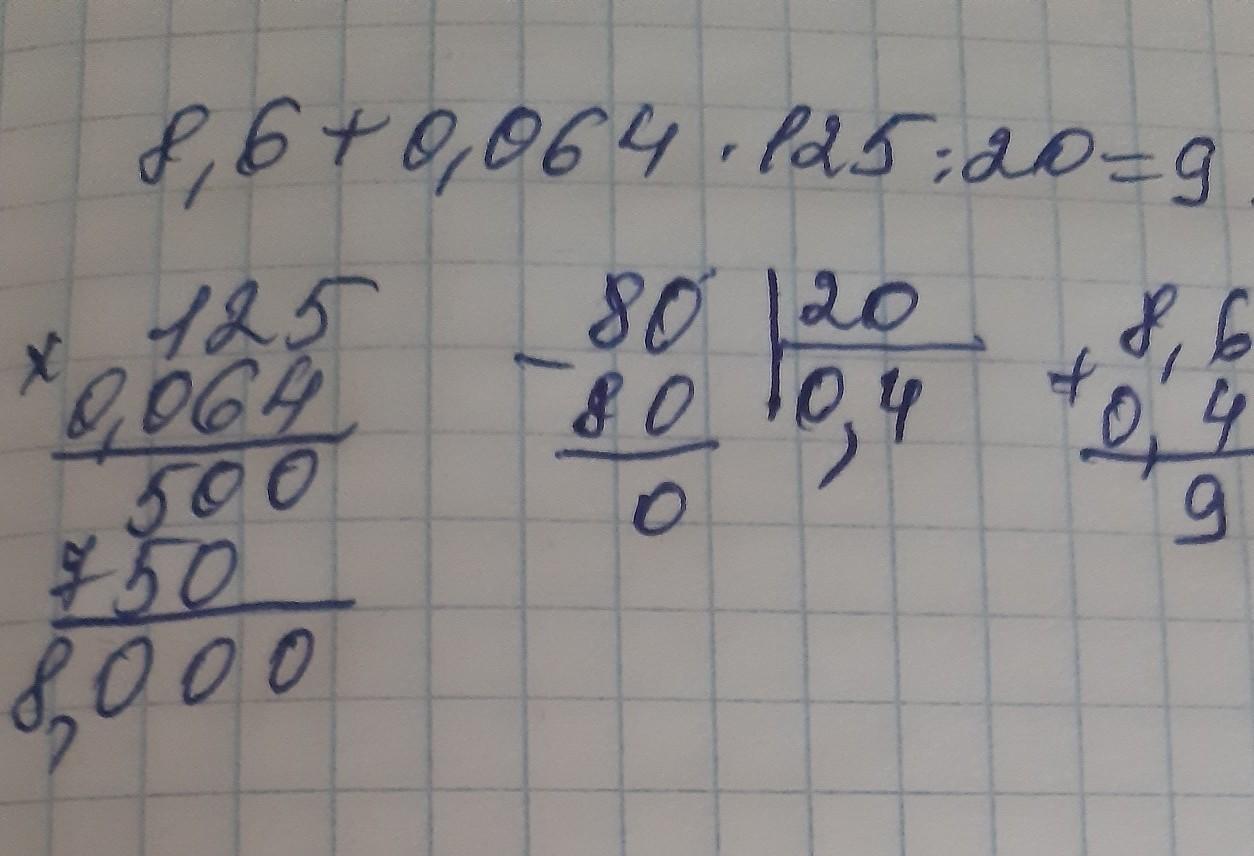 8,6+0,064·125:20=9
125
×
0,064
500
750
8,000
80 | 20
- 80 0,4
0
8,6
+
0,4
9